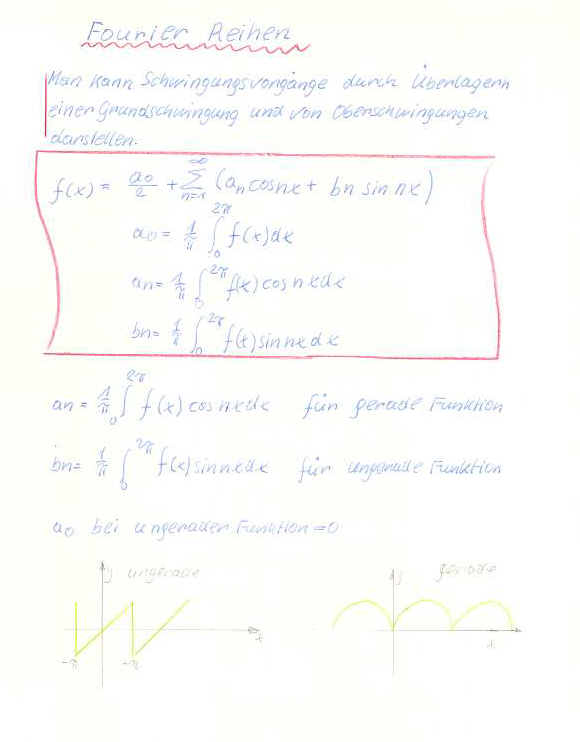 Fourier Reihen
Man kann Schwingungsvorgänge durch Überlagern
einer Grundschwingung und von Oberschwingungen
darstellen.
f(x) = a0/2 + ∞∑n=1 (an cos nx + bn sin nx)
a0 = 1/π ∫0^2π f(x)dx
an = 1/π ∫0^2π f(x) cos nx dx
bn = 1/π ∫0^2π f(x) sin nx dx
an = 1/π ∫0^2π f(x) cos nx dx für gerade Funktion
bn = 1/π ∫0^2π f(x) sin nx dx für ungerade Funktion
a0 bei ungerader Funktion = 0
y ungerade
x
-π -π
y gerade
x